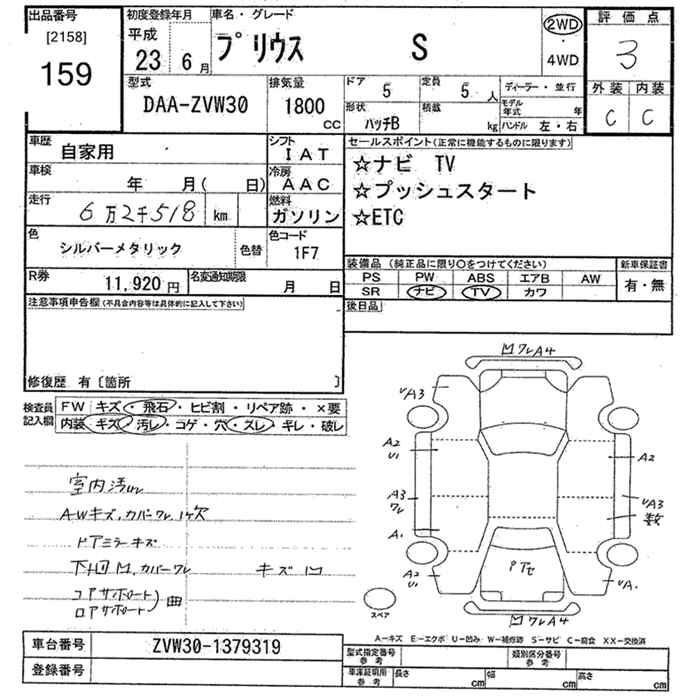 出品番号
[2158]
159
初度登録年月
平成
23 6月
車名・グレード
プリウス S
2WD
・
4WD
評価点
3
外装 内装
C C
型式
DAA-ZVW30
排気量
1800
cc
ドア 5
定員 5 人
形状 ハッチB
積載 kg
ディーラー・並行
モデル年式 年
ハンドル 左・右
車歴 自家用
シフト IAT
車検 年 月( 日)
冷房 AAC
走行 6万2千518 km
燃料 ガソリン
色 シルバーメタリック 色替
色コード 1F7
R券 11,920円
名変通知期限 月 日
セールスポイント(正常に機能するものに限ります)
☆ナビ TV
☆プッシュスタート
☆ETC
装備品(純正品に限り○をつけてください)
PS PW ABS エアB AW
SR ナビ TV カワ
新車保証書
有・無
後日品
注意事項申告欄(不具合内容等は具体的に記入して下さい)
修復歴 有〔箇所 〕
検査員記入欄
FW キズ・飛石・ヒビ割・リペア跡・×要
内装 キズ・汚レ・コゲ・穴・スレ・キレ・破レ
室内汚れ
AWキズ,カバーワレ,1ケ欠
ドアミラーキズ
下回凹,カバーワレ キズ凹
コアサポート
ロアサポート)曲
凹ワレA4
A3
A2
U1
A3
ワレ
A1
A2
U1
A2
A3
数
A1
凹ワレA4
スペア
A-キズ E-エクボ U-凹み W-補修跡 S-サビ C-腐食 XX-交換済
車台番号 ZVW30-1379319
登録番号
型式指定番号参考
類別区分番号参考
車庫証明用参考 長さ cm 幅 cm 高さ cm